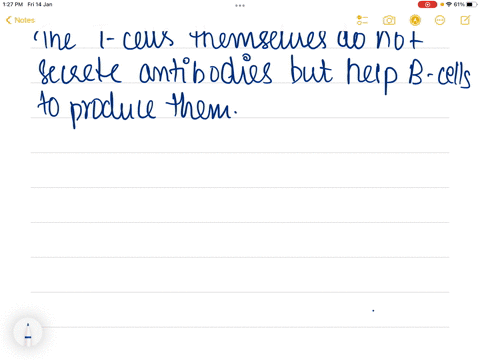 1:27 PM Fri 14 Jan
61%
Notes
The T-cells themselves do not
secrete antibodies but help B-cells
to produce them.